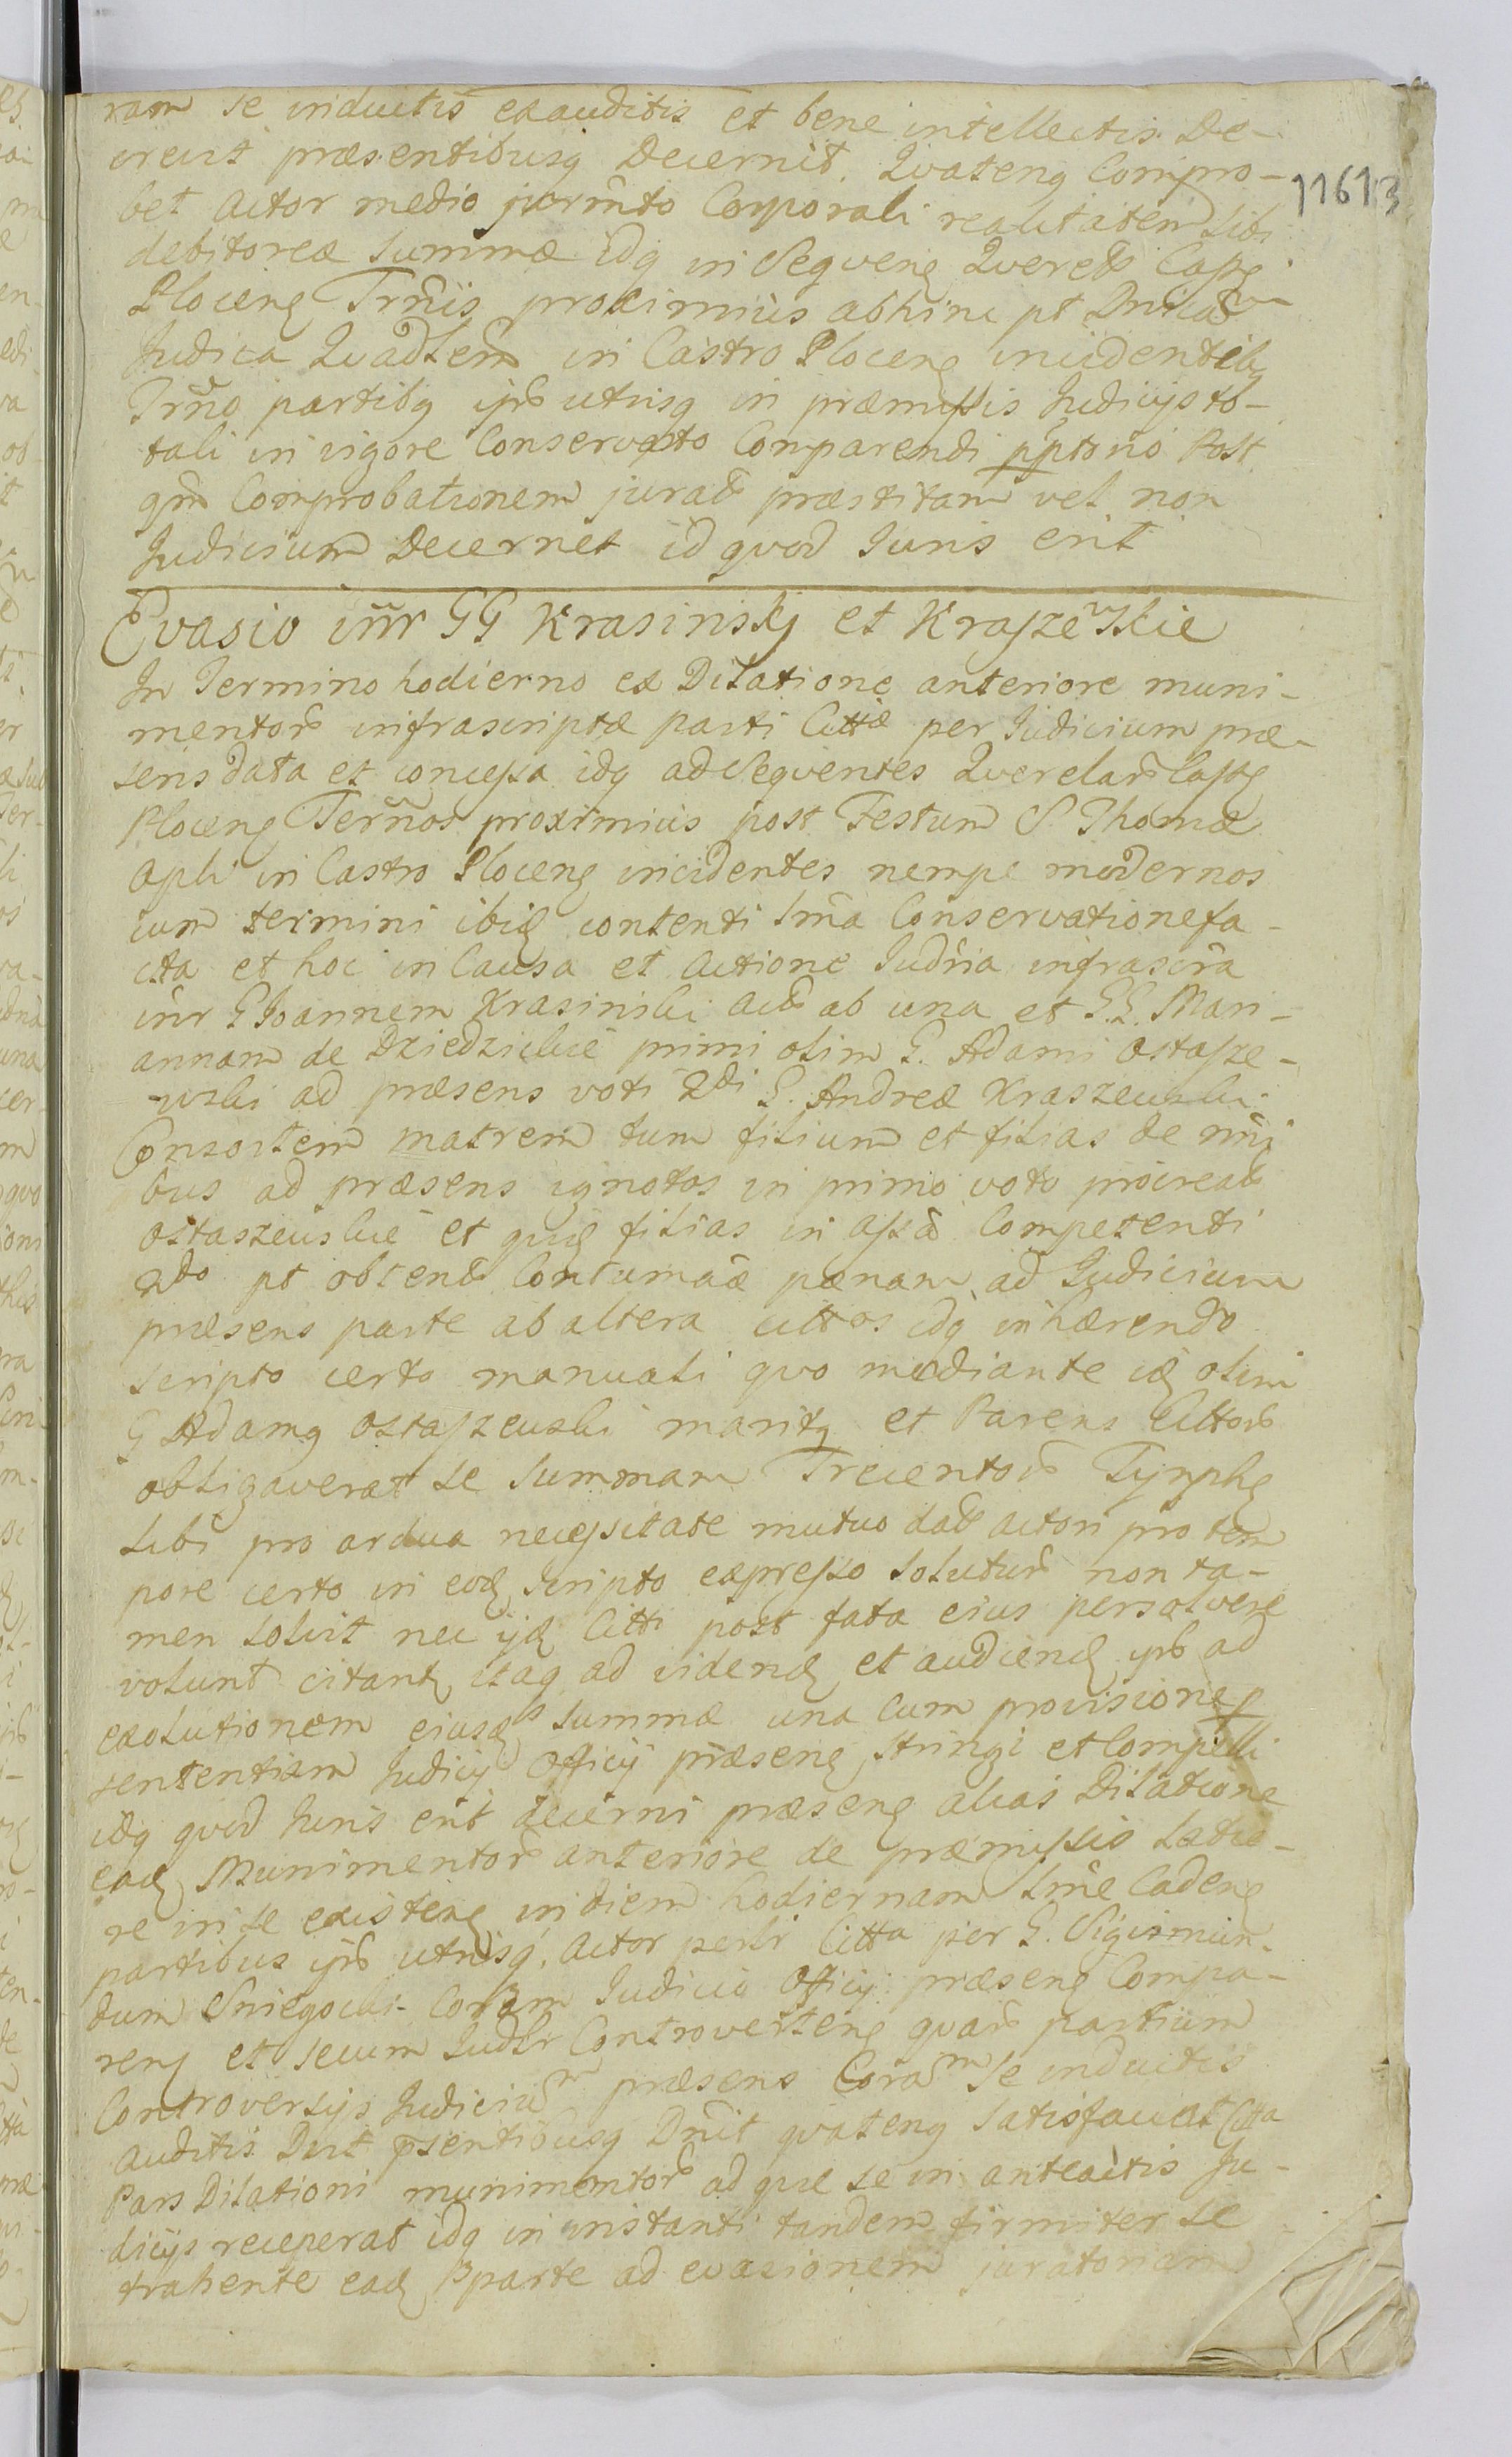 ram se inductis exauditis et bene intellectis De-
crevit præsentibusq Decernit. Qvatenq Compro-
bet Actor medio jurm̃to Corporali realitatem sibi
11613
debitoreæ Summæ idq in Seqveng Qverel Castr
Ploceng Trm̃is proximius abhinc pt Dnicã
Judica Qvadlem in Castro Ploceng incidentibq
Trm̃o partibq ipŝ utrisq in præmissis Judicys to-
tali in vigore Conservato Comparendi pptorio Post
qm̃ Comprobationem jurat præstitam vel non
Judicium Decernet id qvod Juris erit
Evasio inr̃ GG Krasinskj et Kraszewskie
In Termino hodierno ex Dilatione anteriore muni-
mentor infrascriptæ parti Cittæ per Judicium præ-
sens data et concessa idq ad Seqventes Qverelar Castg
Ploceng Term̃os proximius post Festum S. Thomæ
Apli in Castro Ploceng incidentes nempe modernos
cum termini ibid contenti Sm̃a Conservatione fa-
cta et hoc in Causa et Actione Judr̃ia infrascr̃a
inr̃ G Joannem Krasinski Act ab una et G.G. Mari-
annam de Dziedzickie primi olim G. Adami Ostasze-
wski ad præsens voti 2di G. Andreæ Kraszewski
Consortem matrem tum filium et filias de nm̃i
bus ad præsens ignotos in primo voto procreat
Ostaszewskie et qvid filias in assã Competenti
2do pt obtent Contumaciæ pænam ad Judicium
præsens parte ab altera cittos idq inhærendo
scripto certo manuali qvo mediante id olim
G Adamq Ostaszewski maritq et Parens Cittor
obligaverat se Summam Trecentor Tynphg
sibi pro ardua necessitate mutuo dat actori pro tem
pore certo in eod scripto expresso soluturũ non ta-
men solvit nec ijd Citti post fata eius persolvere
volunt citant itaq ad videnđ et audienđ ipŝ ad
exolutionem eiusd Summæ una cum provisione p
sententiam Judicy Officij præseng stringi et Compelli
idq qvod Juris erit decerni præseng alias Dilatione
ead Munimentor anteriore de præmissis latio-
re in se existeng in diem hodiernam Sm̃e Cadeng
partibus ipŝ utrisq. Actor perlr Citta per G. Sigismun-
dum Sniegocki Coram Judicio Officij præseng Compa-
reng et secum Judlr Controverteng qvar partium
Controversys Judicium præsens Coram se inductis
auditis Dvit p̃sentibusq Dnit qvatenq satisfaciat Citta
Pars Dilationi munimentor ad qve se in anteactis Ju-
dicijs receperat idq in instanti tandem firmiter se
trahente ead parte ad evasionem juratoriam